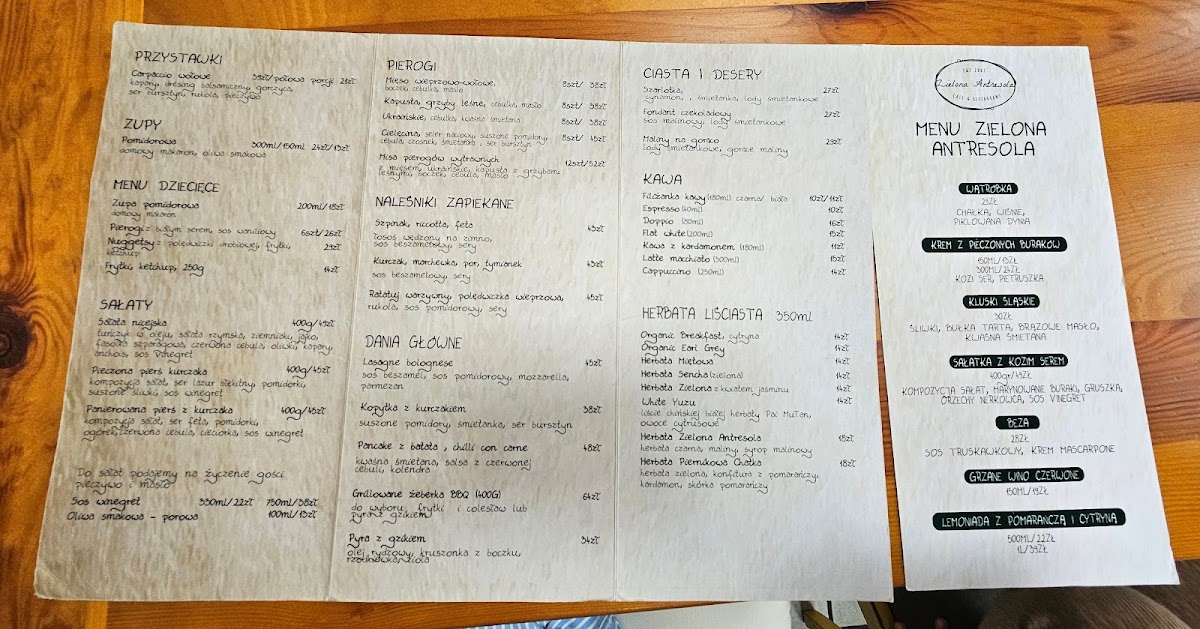 PRZYSTAWKI
Carpaccio wołowe 39zł/połowa porcji 21zł
kapary, dresing balsamiczny, gorczyca,
ser bursztyn, rukola, pieczywo
ZUPY
Pomidorowa 300ml/150ml 24zł/15zł
domowy makaron, oliwa smakowa
MENU DZIECIĘCE
Zupa pomidorowa 200ml/18zł
domowy makaron
Pierogi z białym serem, sos waniliowy 6szt/26zł
Nuggetsy z polędwiczki drobiowej, frytki, 29zł
ketchup
Frytki, ketchup, 250g 14zł
SAŁATY
Sałata nicejska 400g/49zł
tuńczyk w oleju, sałata rzymska, ziemniaki, jajko,
fasolka szparagowa, czerwona cebula, oliwki, kapary,
anchois, sos winegret
Pieczona pierś kurczaka 400g/45zł
kompozycja sałat, ser lazur błękitny, pomidorki,
suszone śliwki, sos winegret
Panierowana pierś z kurczaka 400g/45zł
kompozycja sałat, ser feta, pomidorki,
ogórek, czerwona cebula, cieciorka, sos winegret
Do sałat podajemy na życzenie gości
pieczywo i masło
Sos winegret 330ml/22zł 750ml/38zł
Oliwa smakowa - porowa 100ml/15zł
PIEROGI
Mięso wieprzowo-wołowe, 8szt/ 38zł
boczek, cebulka, masło
Kapusta, grzyby leśne, cebulka, masło 8szt/ 38zł
Ukraińskie, cebulka, kwaśna śmietana 8szt/ 38zł
Cielęcina, seler naciowy, suszone pomidory, 8szt/ 45zł
cebula, czosnek, śmietanka, ser bursztyn
Misa pierogów wytrawnych 12szt/52zł
z mięsem, ukraińskie, kapusta z grzybami
leśnymi, boczek, cebula, masło
NALEŚNIKI ZAPIEKANE
Szpinak, ricotta, feta 43zł
łosoś wędzony na zimno,
sos beszamelowy, sery
Kurczak, marchewka, por, tymianek 43zł
sos beszamelowy, sery
Ratatuj warzywny, polędwiczka wieprzowa, 45zł
rukola, sos pomidorowy, sery
DANIA GŁÓWNE
Lasagne bolognese 45zł
sos beszamel, sos pomidorowy, mozzarella,
parmezan
Kopytka z kurczakiem 38zł
suszone pomidory śmietanka, ser bursztyn
Pancake z batata , chilli con carne 48zł
kwaśna śmietana, salsa z czerwonej
cebuli, kolendra
Grillowane żeberka BBQ (400G) 64zł
do wyboru, frytki i colesław lub
pyra z gzikiem
Pyra z gzikiem 34zł
olej rydzowy, kruszonka z boczku,
rzodkiewka, zioła
CIASTA I DESERY
Szarlotka, 27zł
cynamon, , śmietanka, lody śmietankowe
Fondant czekoladowy 27zł
sos malinowy, lody śmietankowe
Maliny na gorąco 29zł
lody śmietankowe, gorące maliny
KAWA
Filiżanka kawy (180ml) czarna/ biała 10zł/ 11zł
Espresso (40ml) 10zł
Doppio (80ml) 16zł
Flat white (200ml) 15zł
Kawa z kardamonem (180ml) 11zł
Latte macchiato (300ml) 15zł
Cappuccino (250ml) 14zł
HERBATA LIŚCIASTA 350ml
Organic Breakfast, cytryna 14zł
Organic Earl Grey 14zł
Herbata Miętowa 14zł
Herbata Sencha (zielona) 14zł
Herbata Zielona z kwiatem jaśminu 14zł
White Yuzu 14zł
liście chińskiej białej herbaty, Pai MuTan,
owoce cytrusowe
Herbata Zielona Antresola 18zł
herbata czarna, maliny, syrop malinowy
Herbata Piernikowa Chatka 18zł
herbata zielona, konfitura z pomarańczy,
kardamon, skórka pomarańczy
Zielona Antresola
CAFE & RESTAURANT
MENU ZIELONA
ANTRESOLA
WĄTRÓBKA
29ZŁ
CHAŁKA, WIŚNIE,
PIKLOWANA DYNIA
KREM Z PIECZONYCH BURAKÓW
150ML/15ZŁ
300ML/24ZŁ
KOZI SER, PIETRUSZKA
KLUSKI ŚLĄSKIE
30ZŁ
ŚLIWKI, BUŁKA TARTA, BRĄZOWE MASŁO,
KWAŚNA ŚMIETANA
SAŁATKA Z KOZIM SEREM
400gr/45ZŁ
KOMPOZYCJA SAŁAT, MARYNOWANE BURAKI, GRUSZKA,
ORZECHY NERKOWCA, SOS VINEGRET
BEZA
28ZŁ
SOS TRUSKAWKOWY, KREM MASCARPONE
GRZANE WINO CZERWONE
150ML/19ZŁ
LEMONIADA Z POMARAŃCZĄ I CYTRYNĄ
500ML/22ZŁ
1L/39ZŁ